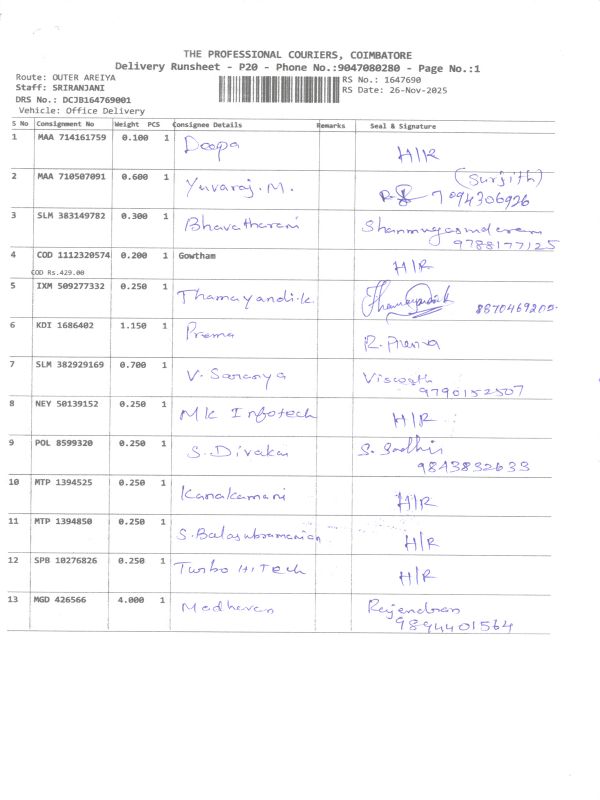 THE PROFESSIONAL COURIERS, COIMBATORE
Delivery Runsheet - P20 - Phone No.:9047080280 - Page No.:1
Route: OUTER AREIYA RS No.: 1647690
Staff: SRIRANJANI RS Date: 26-Nov-2025
DRS No.: DCJB164769001
Vehicle: Office Delivery
S No Consignment No Weight PCS Consignee Details Remarks Seal & Signature
1 MAA 714161759 0.100 1 Deepa H/R
2 MAA 710507091 0.600 1 Yuvaraj.M. (Surjith) 7094306926
3 SLM 383149782 0.300 1 Bhavatharani Shanmugasundaram
9788177125
4 COD 1112320574 0.200 1 Gowtham H/R
COD Rs.429.00
5 IXM 509277332 0.250 1 Thamayandi.k. 8870469200
6 KDI 1686402 1.150 1 Prema R. Prema
7 SLM 382929169 0.700 1 V. Saranya Viswath
9790152507
8 NEY 50139152 0.250 1 Mk Infotech H/R
9 POL 8599320 0.250 1 S. Divakar S. Sadhir
9843832633
10 MTP 1394525 0.250 1 Kanakamani H/R
11 MTP 1394850 0.250 1 S. Balasubramanian H/R
12 SPB 10276826 0.250 1 Turbo HiTech H/R
13 MGD 426566 4.000 1 Madhavan Rajendran
9894401564